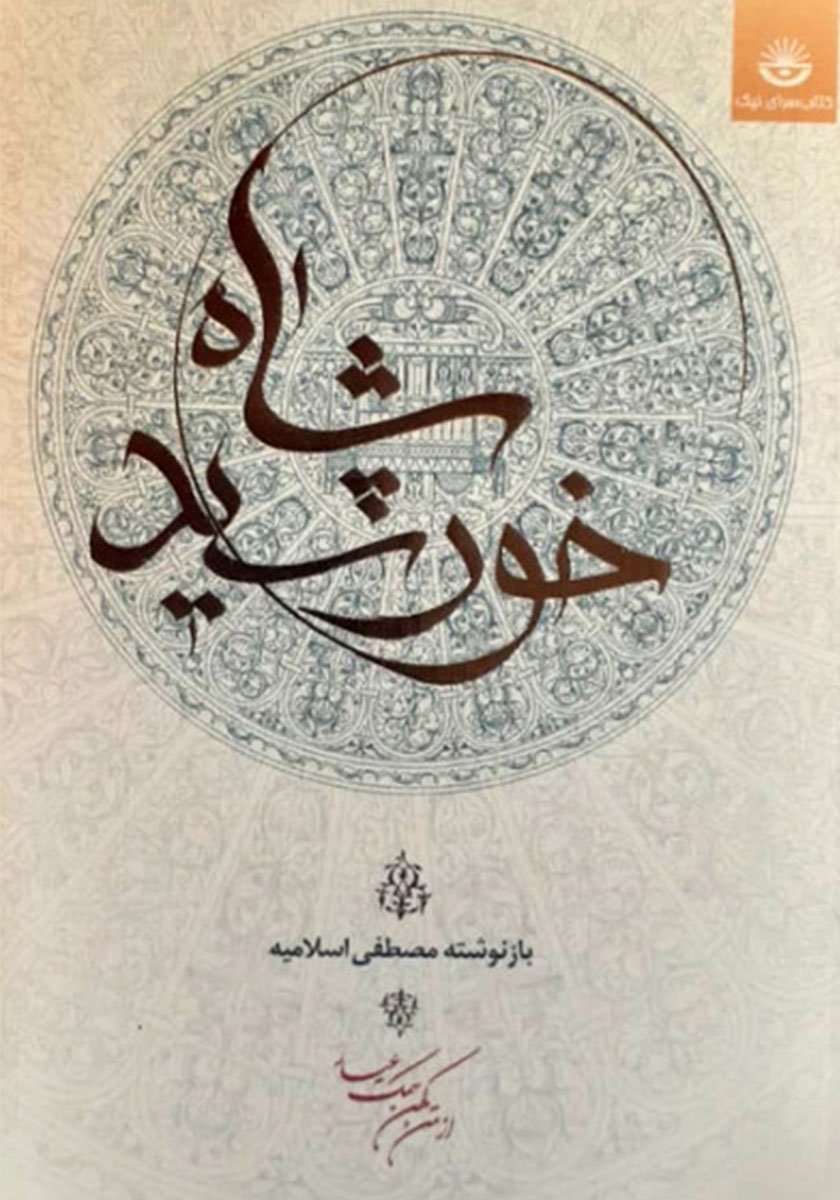 کتاب‌سرای نیک
شاه
خورشید
بازنوشته مصطفی اسلامیه
از متن کهن سمک عیار